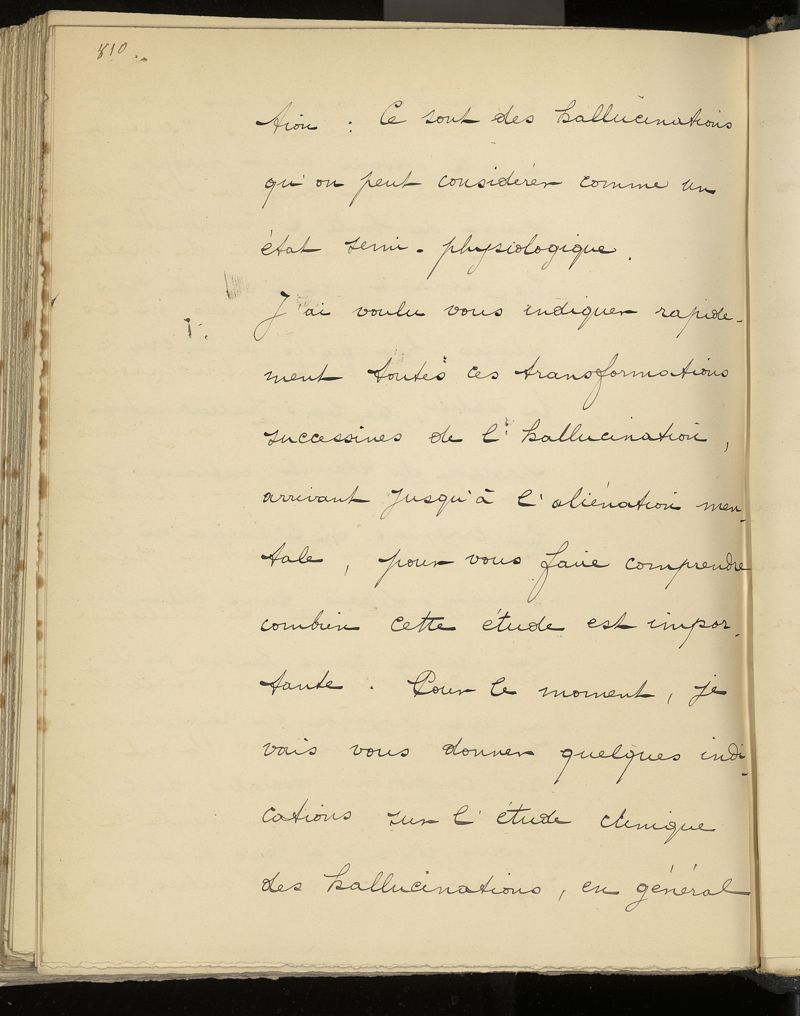 810.
tion : Ce sont des hallucinations
qu'on peut considérer comme un
état semi-physiologique.
J'ai voulu vous indiquer rapide-
ment toutes ces transformations
successives de l'hallucination,
arrivant jusqu'à l'aliénation men-
tale, pour vous faire comprendre
combien cette étude est impor-
tante. Pour le moment, je
vais vous donner quelques indi-
cations sur l'étude clinique
des hallucinations, en général